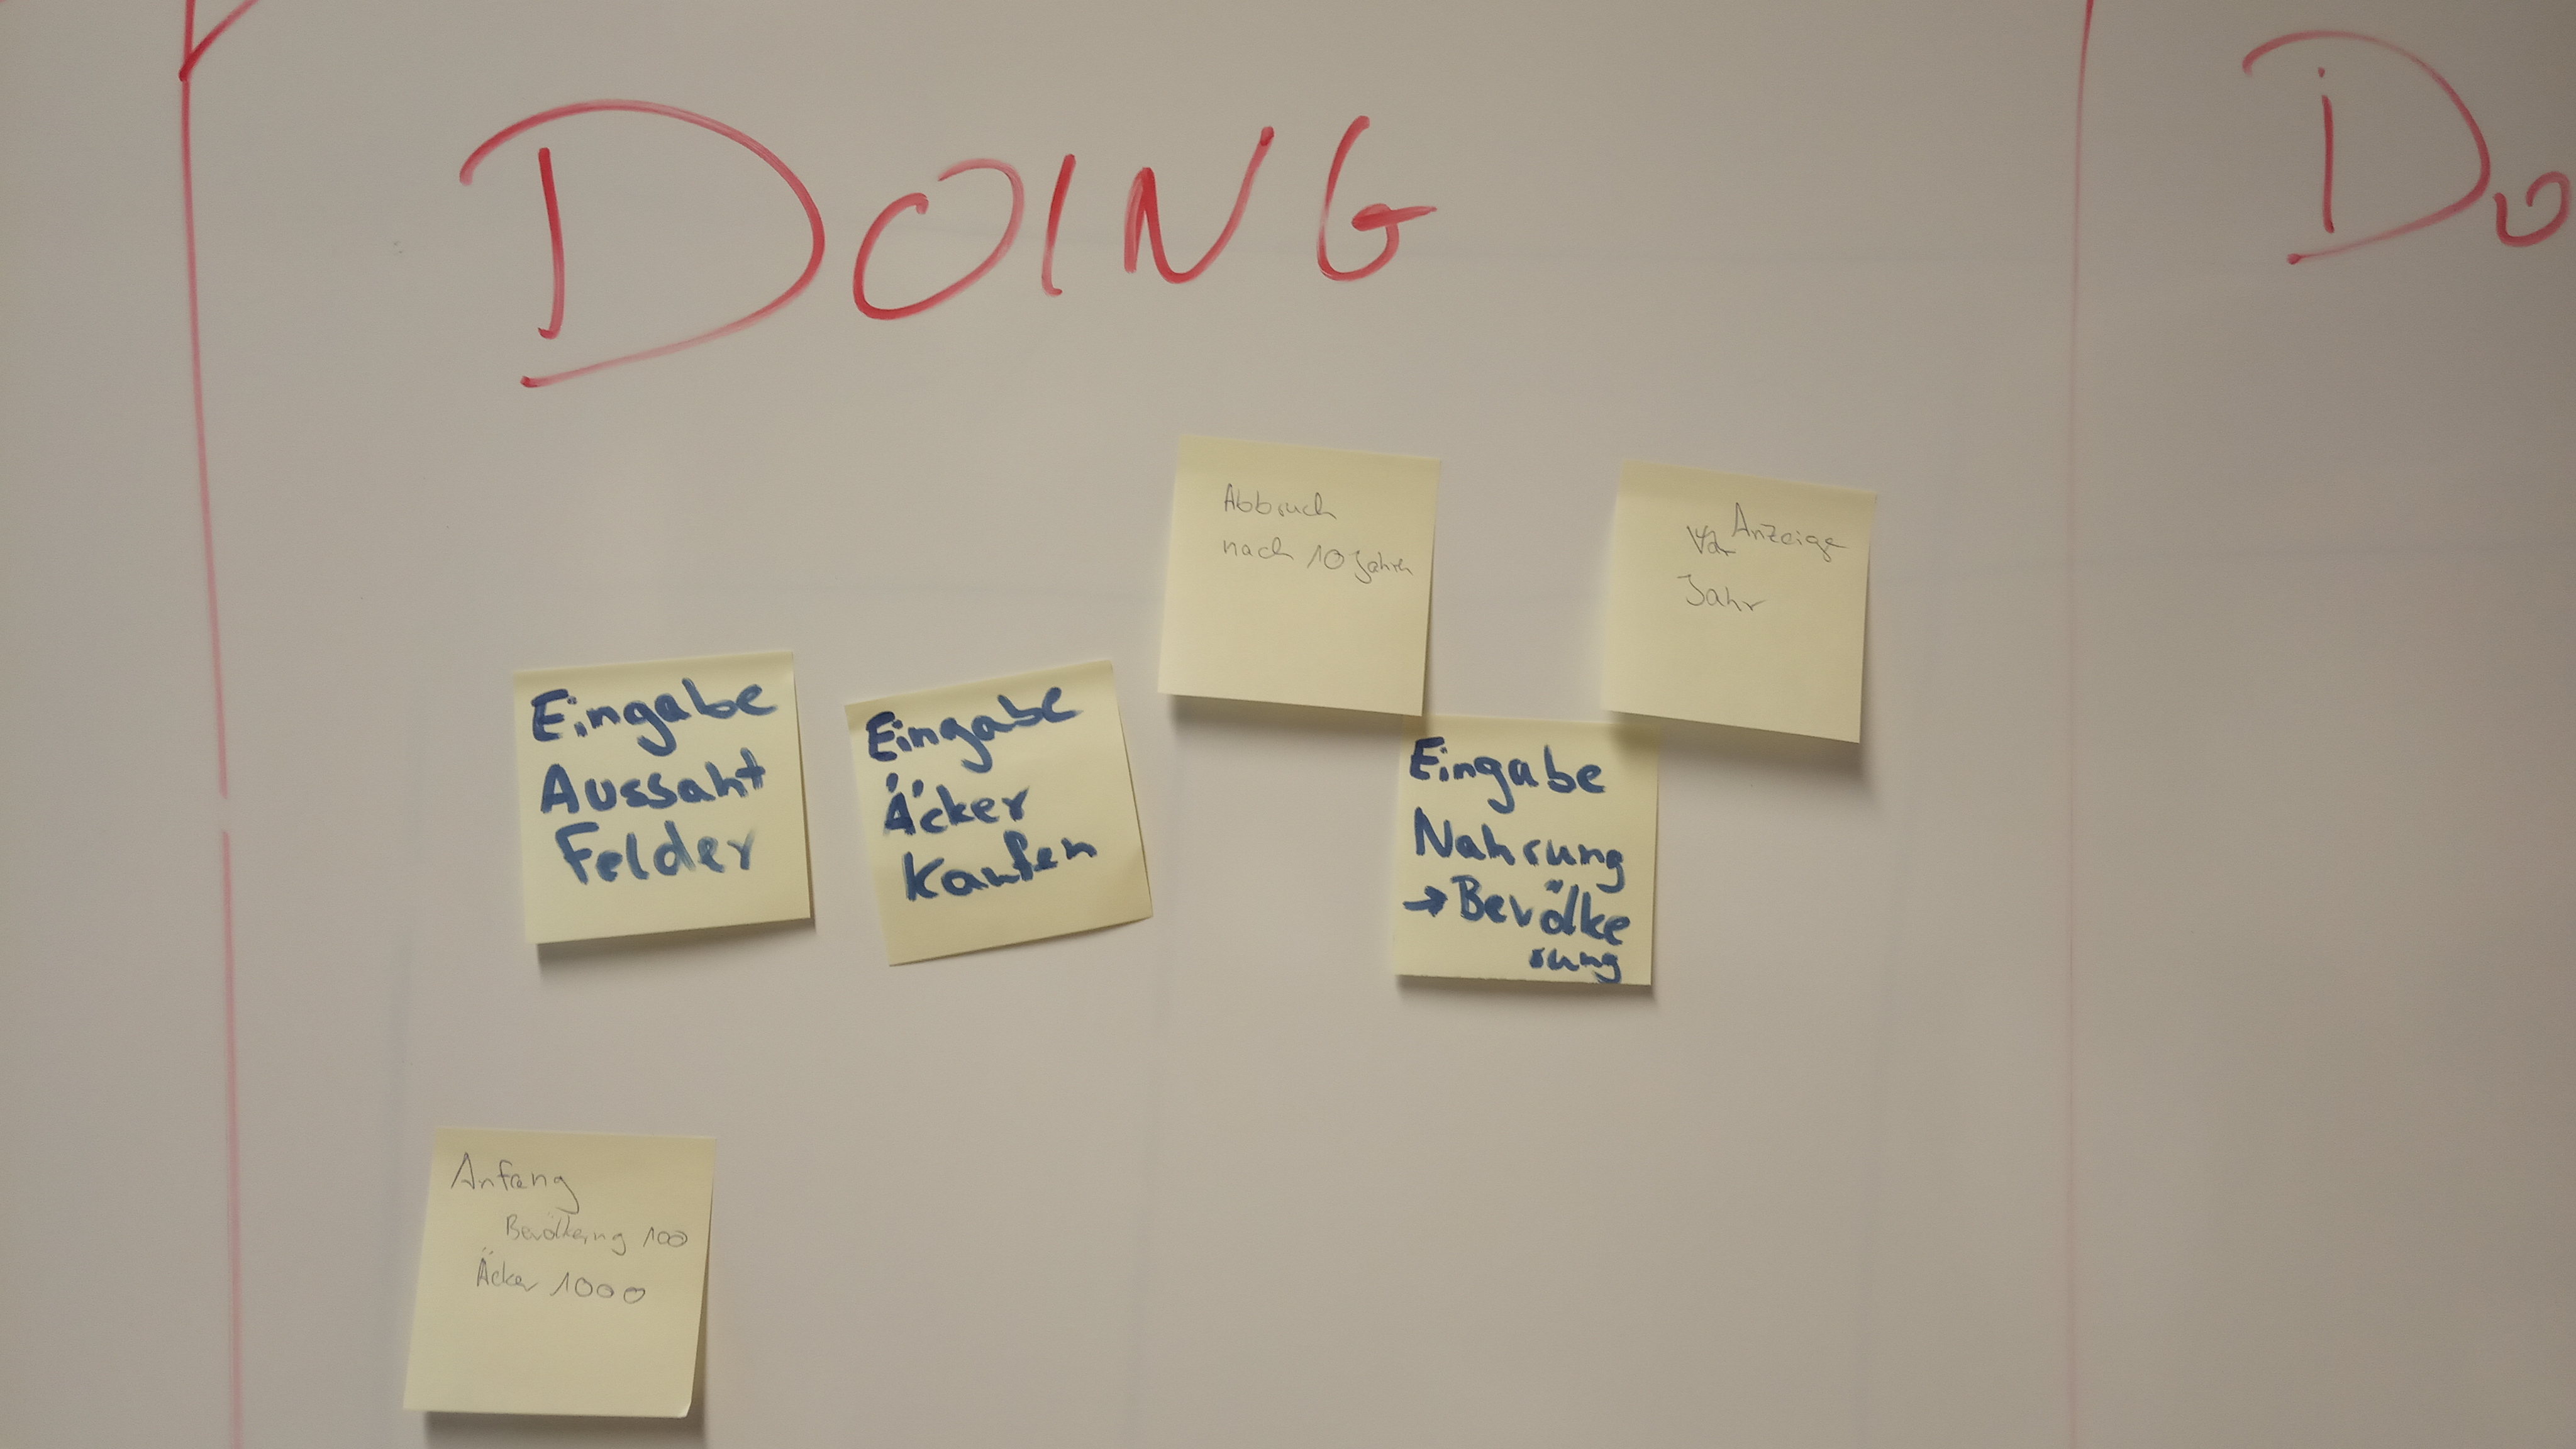 DOING
Do
Abbruch
nach 10 Jahren
Anzeige
Jahr
Eingabe
Aussaht
Felder
Eingabe
Äcker
Kaufen
Eingabe
Nahrung
→ Bevölke
rung
Anfang
Bevölkerung 100
Äcker 1000